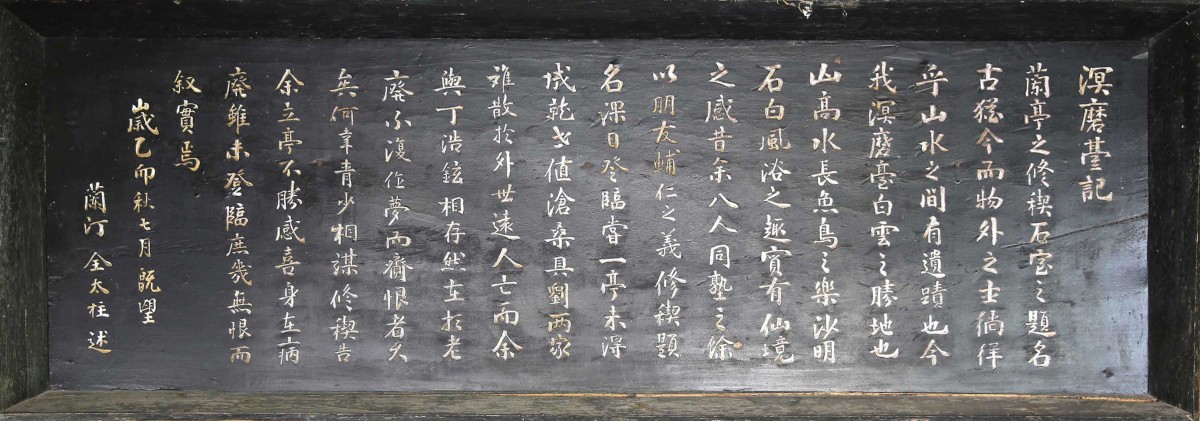 溟磨臺記
蘭亭之修稧石室之題名
古猶今而物外之士徜徉
乎山水之間有遺蹟也今
我溟磨臺白雲之勝地也
山高水長魚鳥之樂沙明
石白風浴之趣實有仙境
之感昔余八人同塾之餘
以朋友輔仁之義修稧題
名深日登臨嘗一亭未得
成乾老值滄桑具劉两家
雖散於外世遠人亡而余
與丁浩鉉相存然在於老
廢不復作夢而齎恨者久
矣何幸青少相謀修稧告
余立亭不勝感喜身在病
廢雖未登臨庶幾無恨而
叙實焉
歲乙卯秋七月旣望
蘭汀 全大柱 述